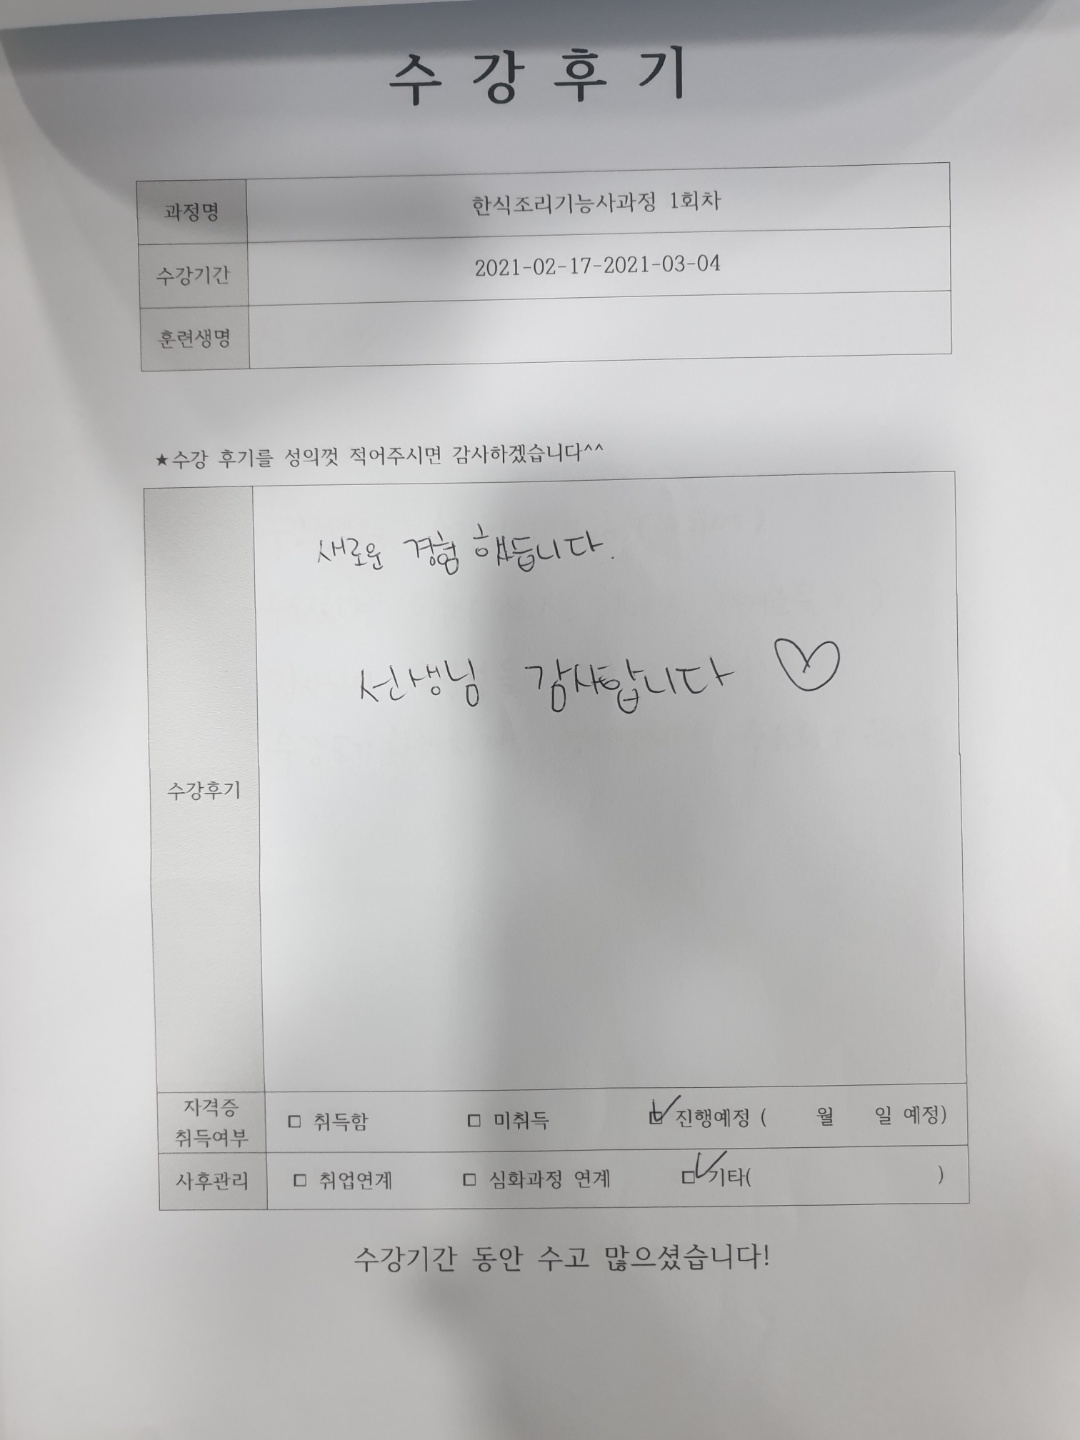 수 강 후 기
과정명 한식조리기능사과정 1회차
수강기간 2021-02-17-2021-03-04
훈련생명
★수강 후기를 성의껏 적어주시면 감사하겠습니다^^
수강후기
새로운 경험 했습니다.
선생님 감사합니다 ♡
자격증
취득여부
□ 취득함 □ 미취득 ☑ 진행예정 ( 월 일 예정)
사후관리 □ 취업연계 □ 심화과정 연계 ☑ 기타( )
수강기간 동안 수고 많으셨습니다!